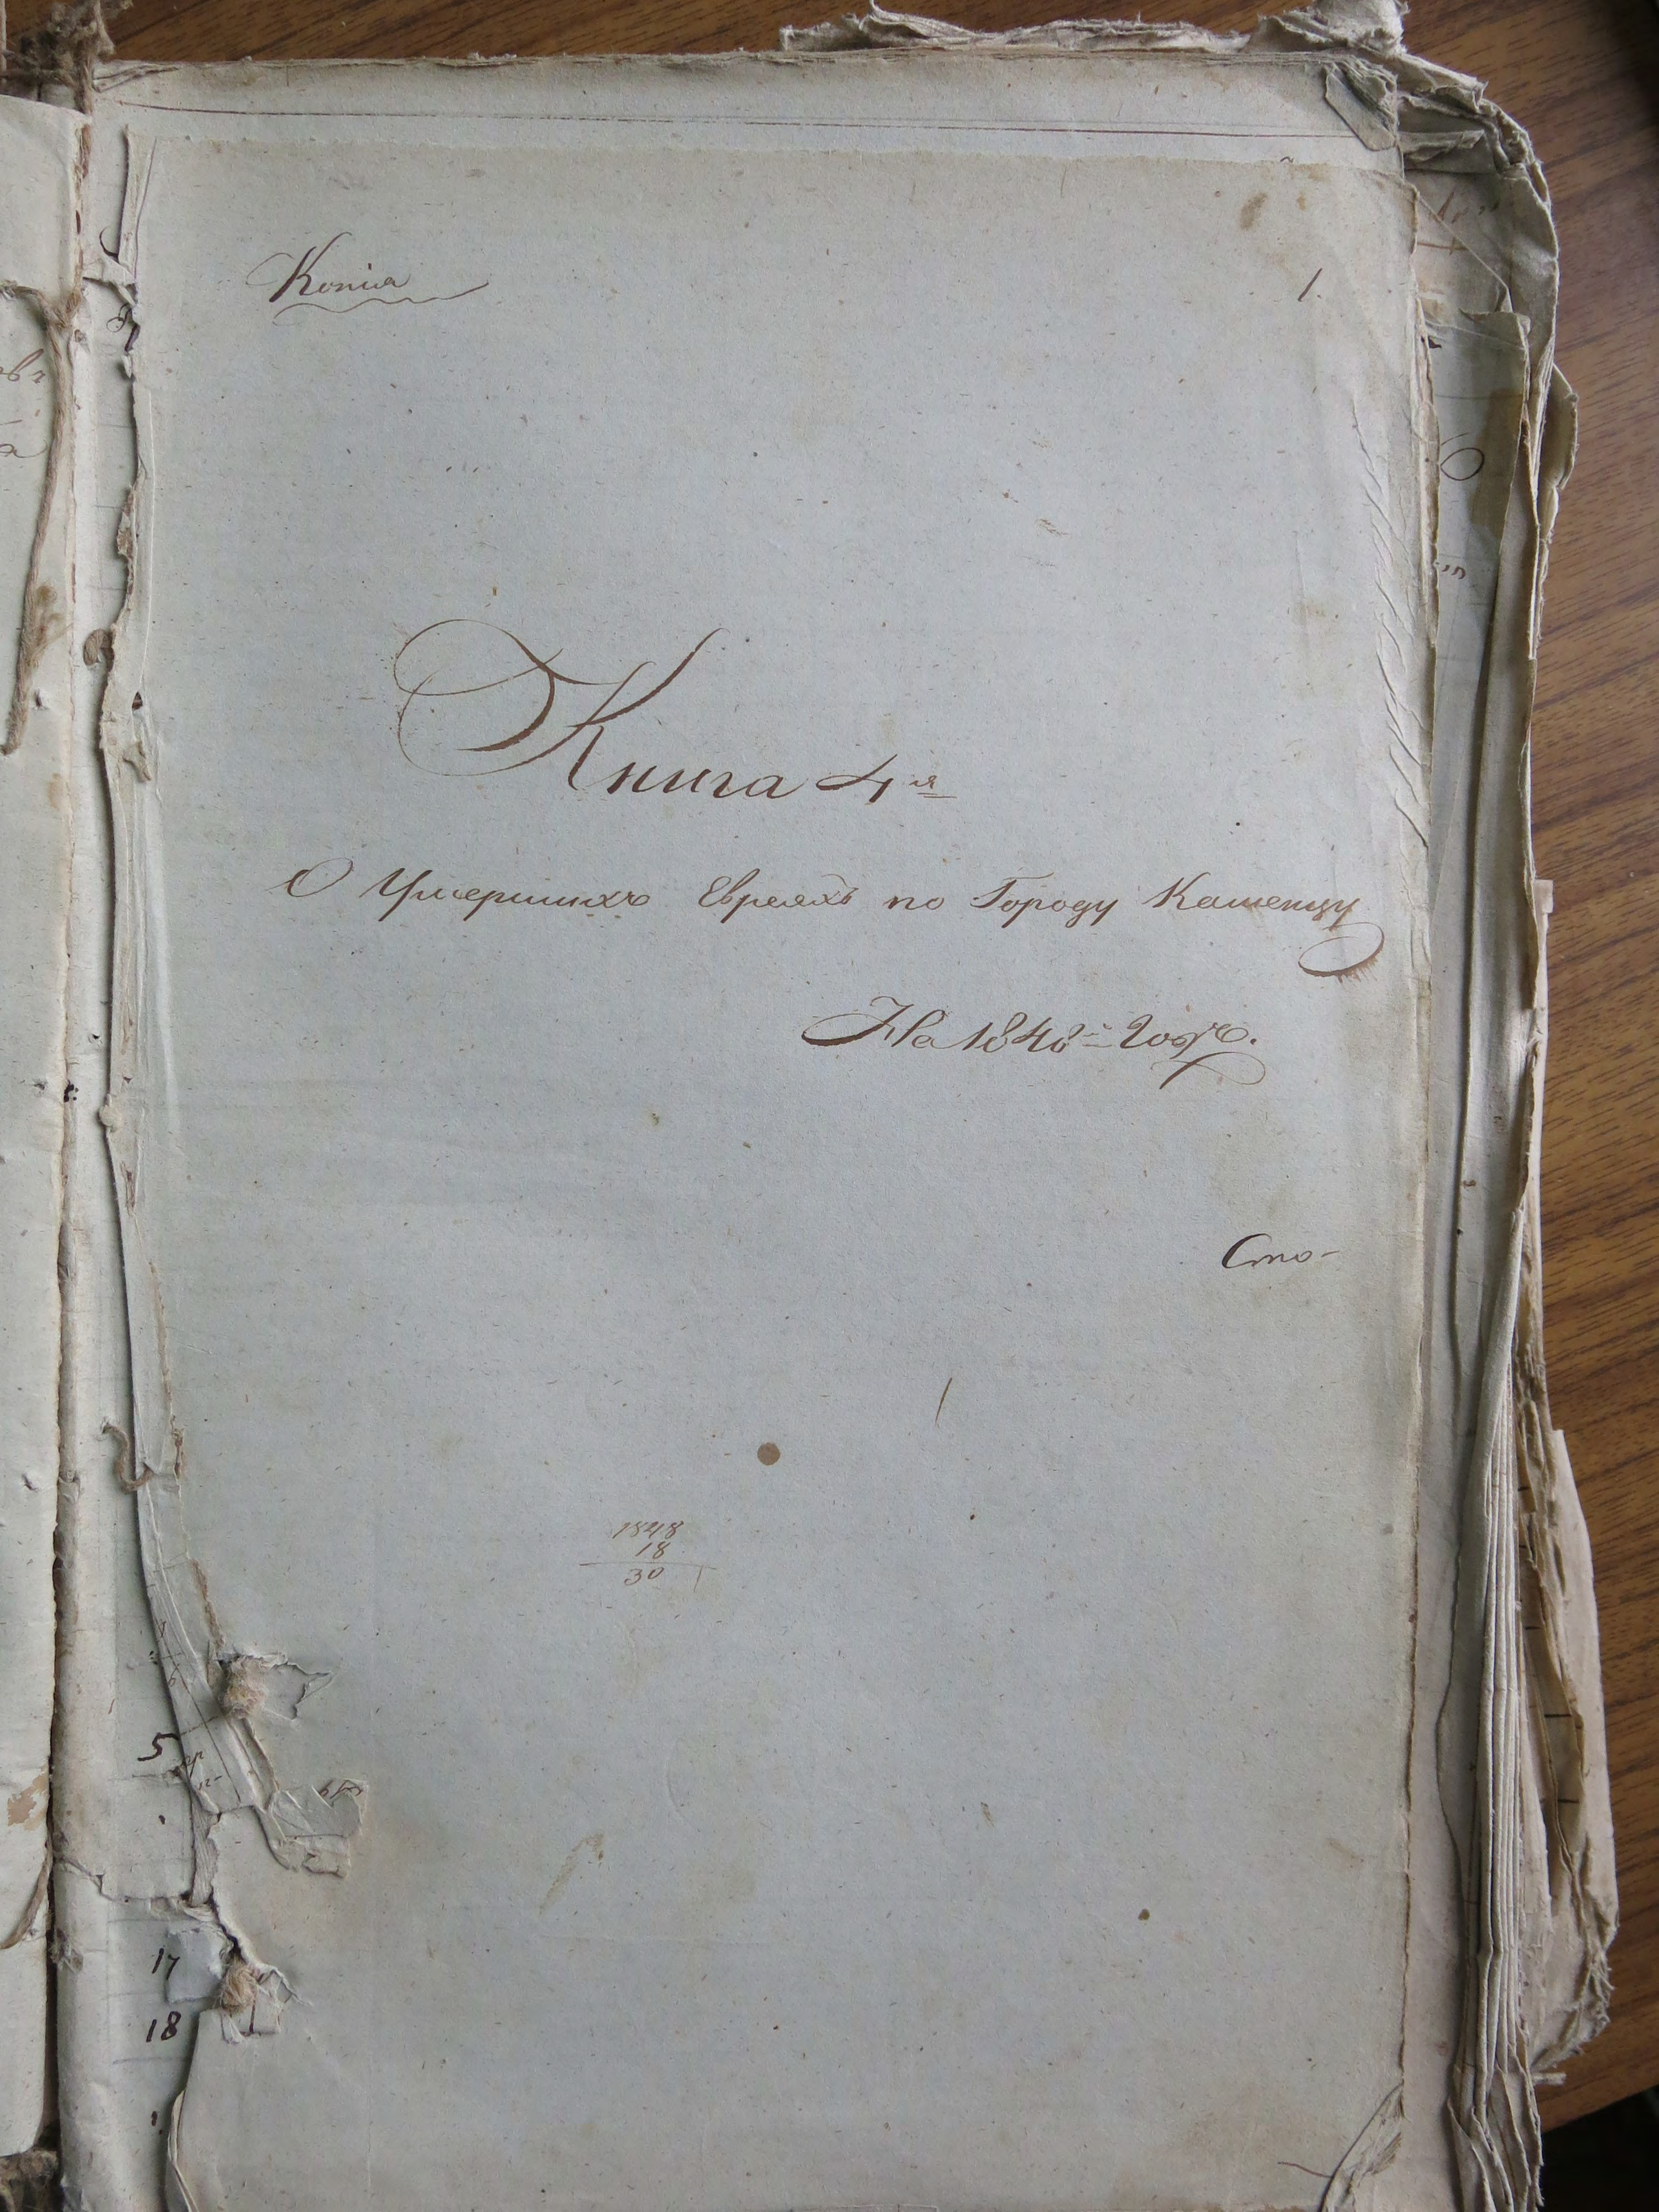 Копія
1.
Книга 4я
О Умершихъ Евреяхъ по Городу Каменцу
На 1848й годъ.
Сто-
1848
18
30
5
17
18